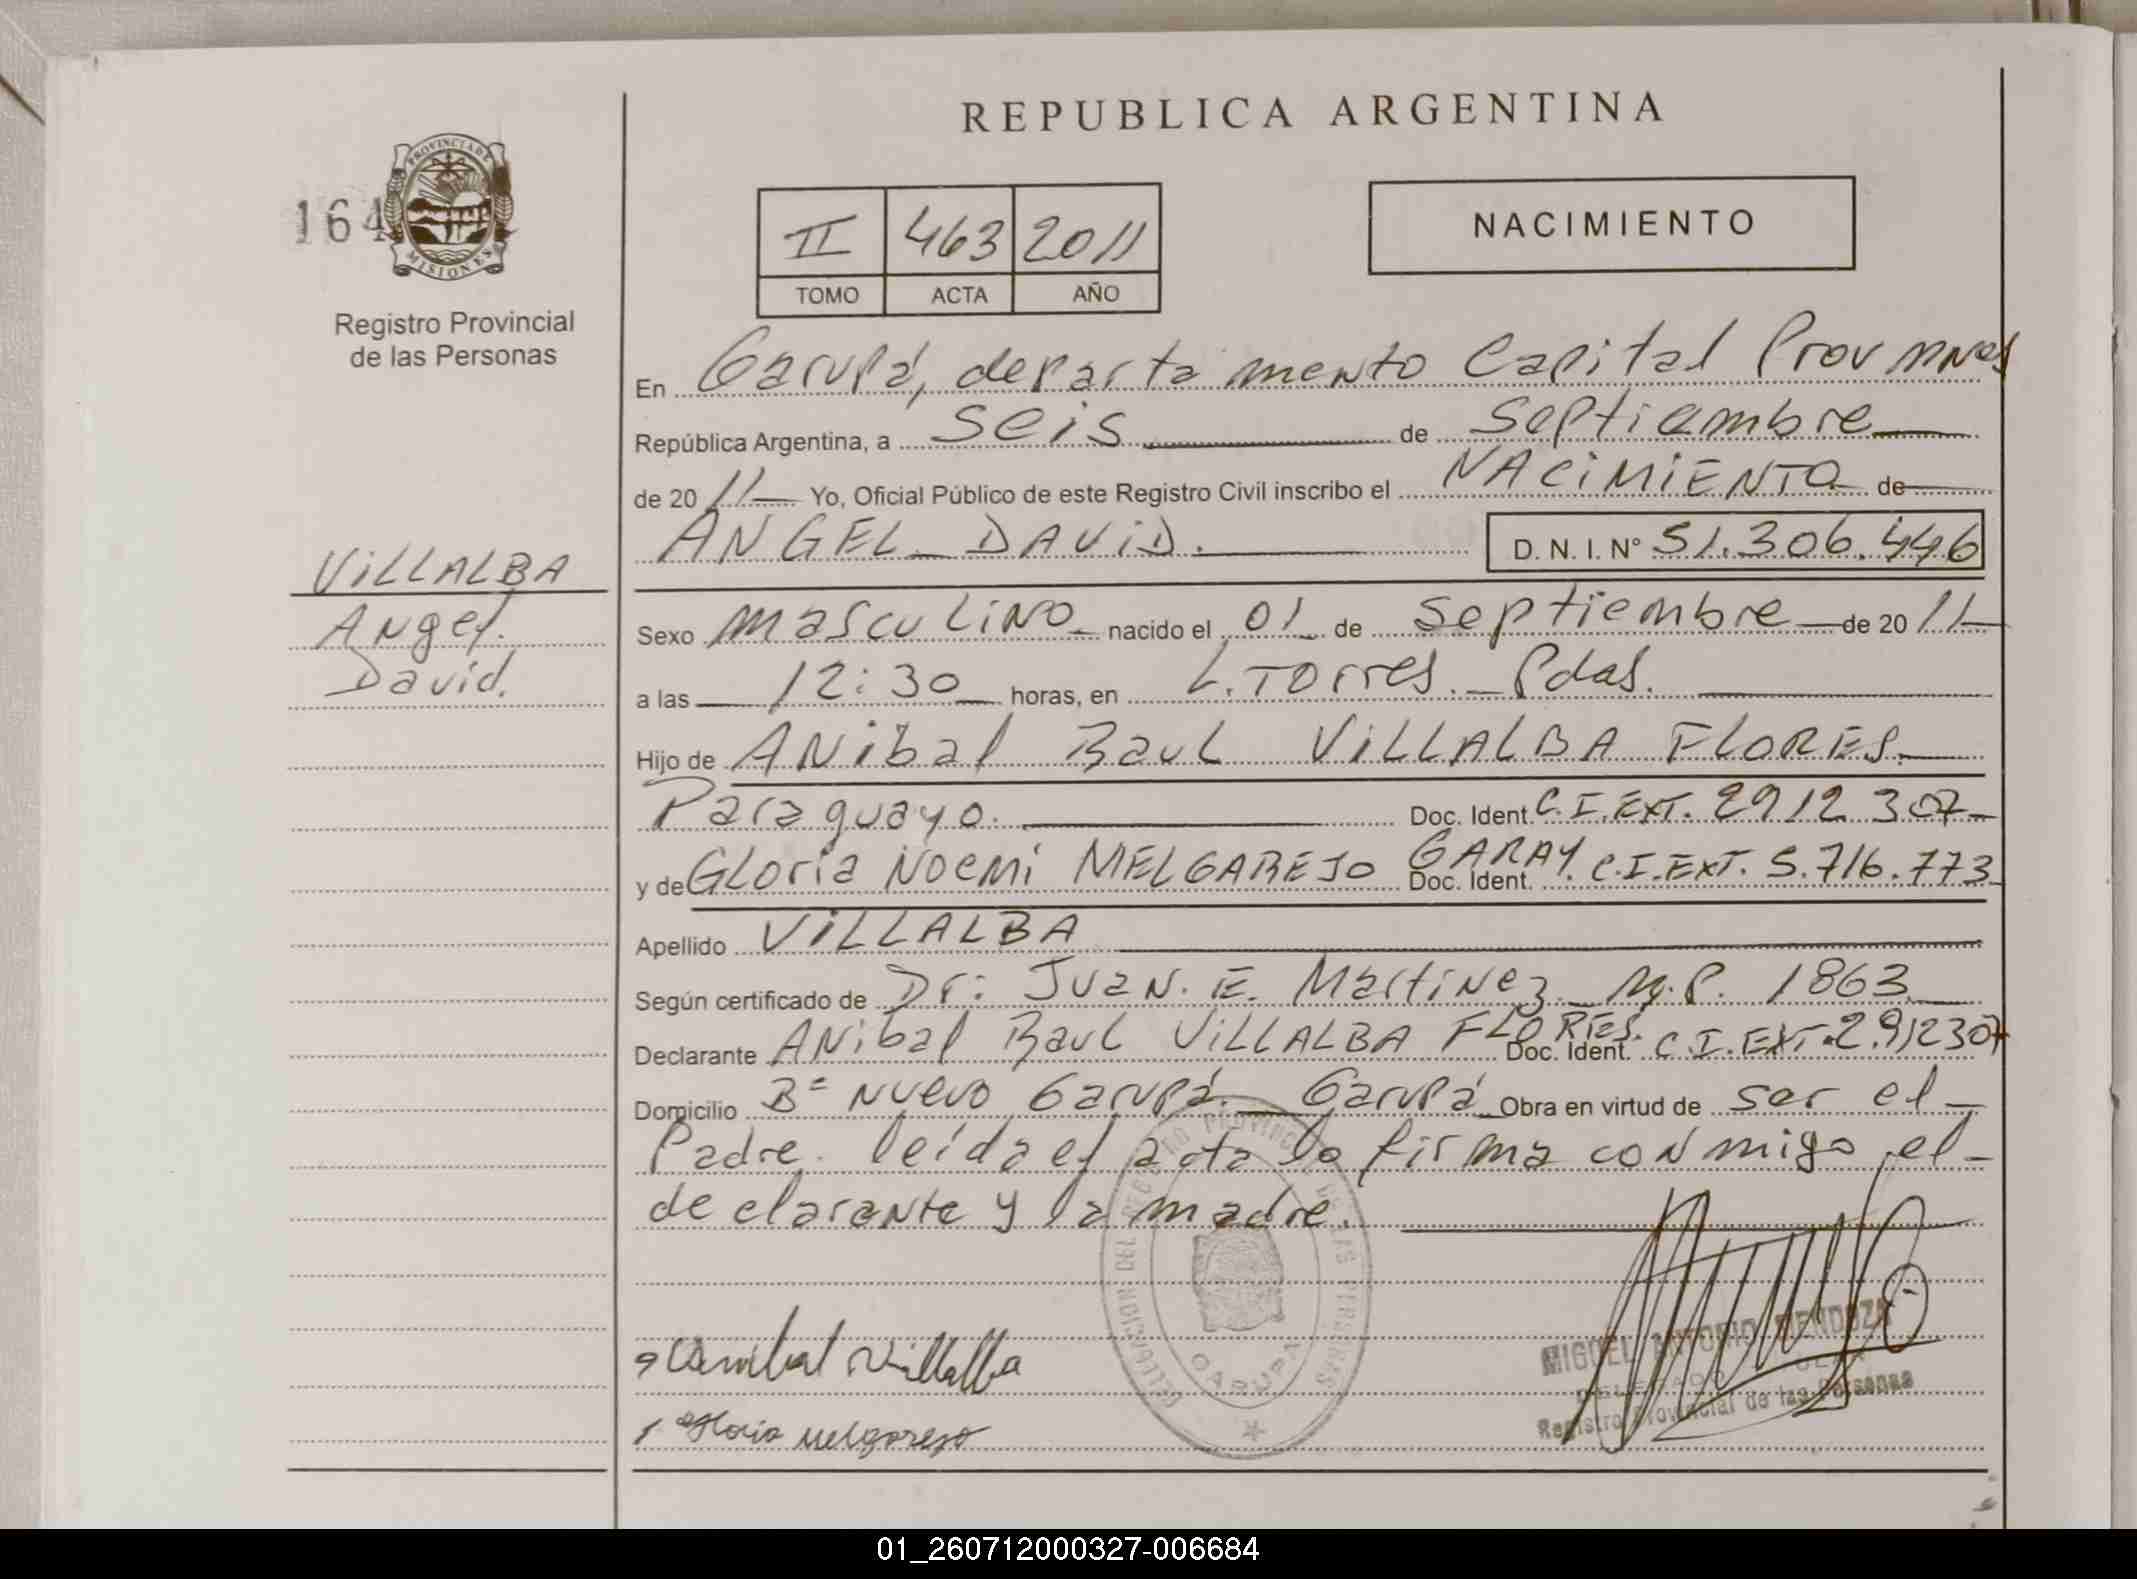 REPUBLICA ARGENTINA
164
PROVINCIA DE
MISIONES
Registro Provincial
de las Personas
II 463 2011
TOMO ACTA AÑO
NACIMIENTO
En Garupá, departamento Capital Prov mnes
República Argentina, a seis de septiembre
de 20 11 Yo, Oficial Público de este Registro Civil inscribo el NACIMIENTO de
ANGEL DAVID. D. N. I. Nº 51.306.446
VILLALBA
Angel
David.
Sexo masculino nacido el 01 de septiembre de 20 11
a las 12:30 horas, en L. Torres. Pdas.
Hijo de Anibal Raul VILLALBA FLORES.
Paraguayo. Doc. Ident. C.I.EXT. 2912307
y de Gloria Noemi MELGAREJO GARAY. Doc. Ident. C.I.EXT. 5.716.773
Apellido VILLALBA
Según certificado de Dr: Juan. E. Martinez M.P. 1863
Declarante Anibal Raul VILLALBA FLORES. Doc. Ident. C.I.EXT. 2.912307
Domicilio Bº Nuevo Garupá. Garupá Obra en virtud de ser el
Padre. leída el acta la firma conmigo el
declarante y la madre.
DELEGACION DEL REGISTRO PROVINCIAL DE LAS PERSONAS
GARUPA
Anibal Villalba
Gloria Melgarejo
MIGUEL ANTONIO MENDOZA
DELEGADO
Registro Provincial de las Personas
01_260712000327-006684